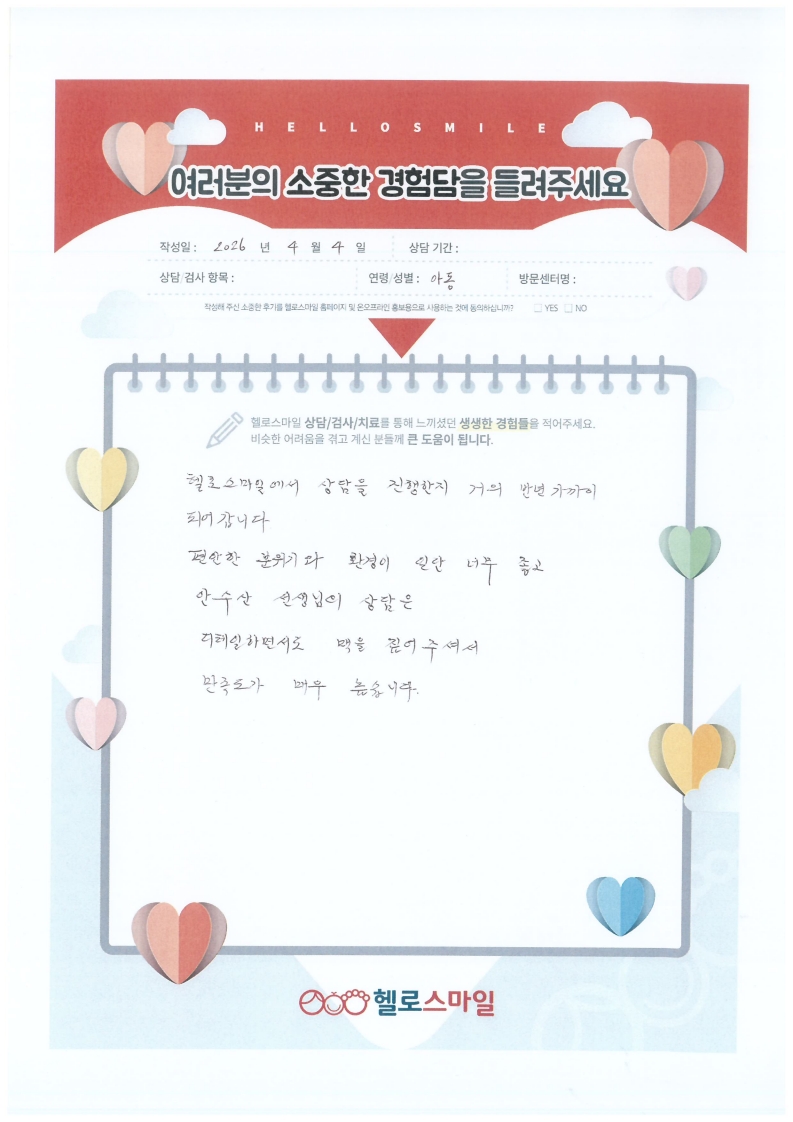 HELLOSMILE
여러분의 소중한 경험담을 들려주세요
작성일 : 2026 년 4 월 4 일 상담 기간 :
상담/검사 항목 : 연령/성별 : 아동 방문센터명 :
작성해 주신 소중한 후기를 헬로스마일 홈페이지 및 온오프라인 홍보용으로 사용하는 것에 동의하십니까? □ YES □ NO
헬로스마일 상담/검사/치료를 통해 느끼셨던 생생한 경험들을 적어주세요.
비슷한 어려움을 겪고 계신 분들께 큰 도움이 됩니다.
헬로스마일에서 상담을 진행한지 거의 반년 가까이
되어 갑니다
편안한 분위기와 환경이 일단 너무 좋고
안수산 선생님이 상담은
디테일하면서도 맥을 짚어 주셔서
만족도가 매우 높습니다.
헬로스마일